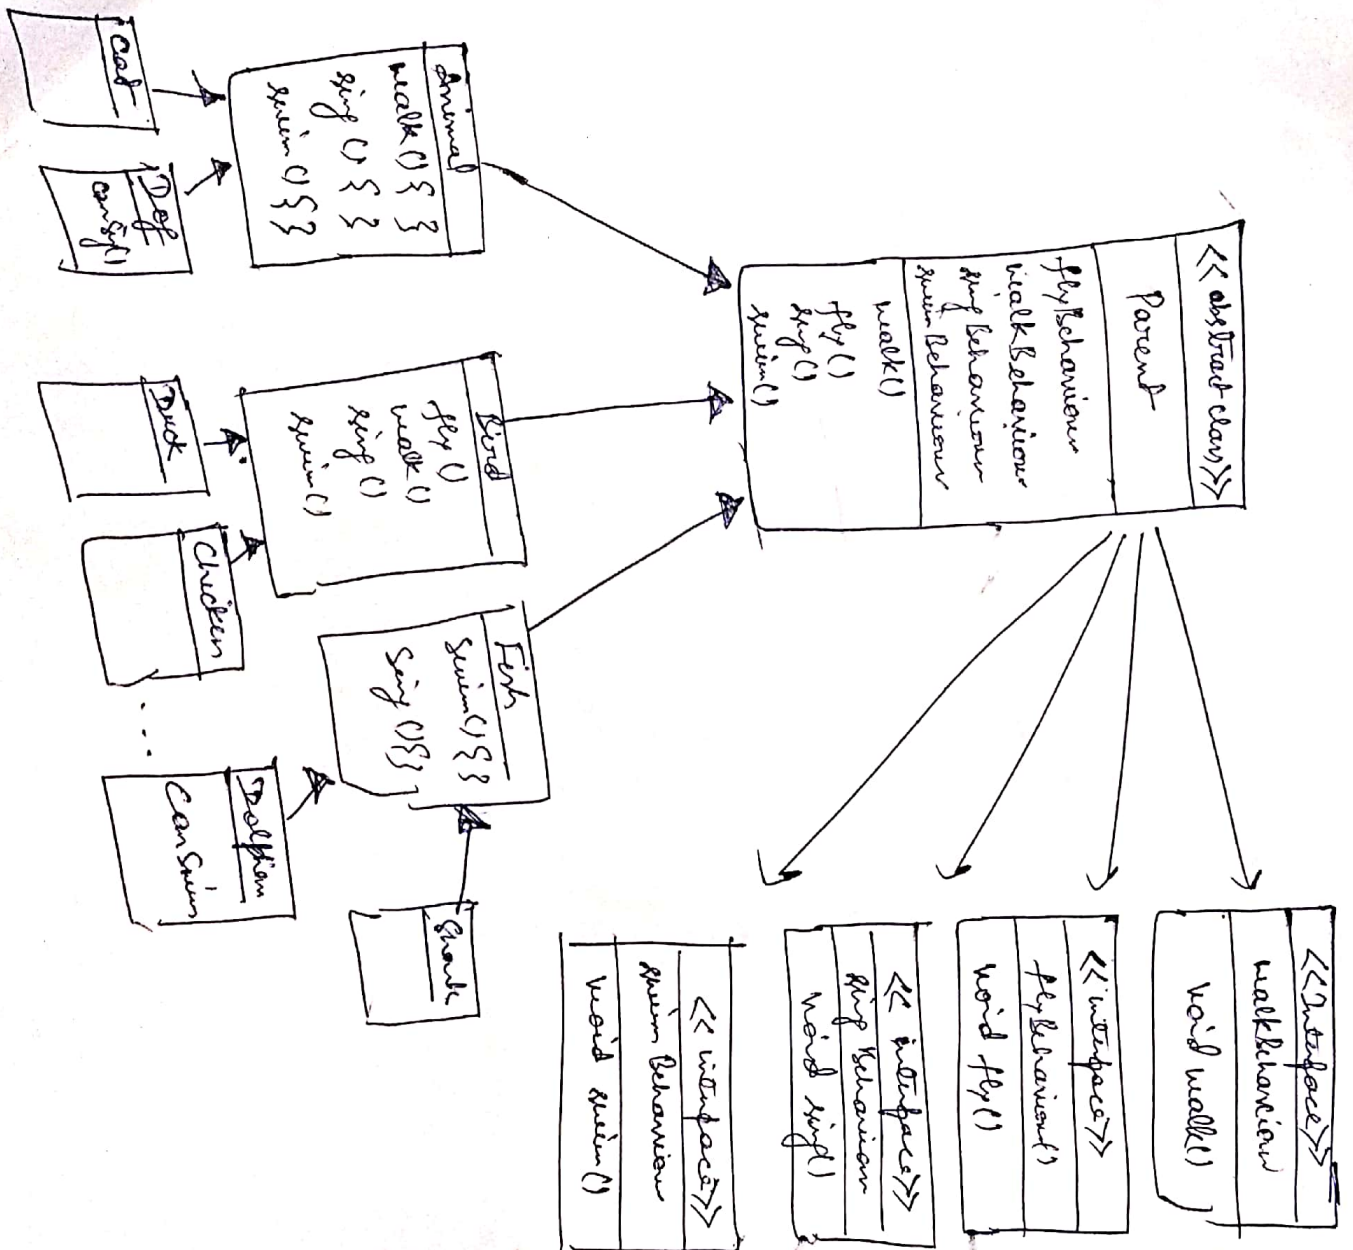 <<abstract class>>
Parent
flyBehaviour
walkBehaviour
singBehaviour
swimBehaviour
walk()
fly()
sing()
swim()
<<Interface>>
walkBehaviour
void walk()
<<interface>>
flyBehaviour()
void fly()
<< interface>>
sing Behaviour
void sing()
<< interface>>
swim Behaviour
void swim()
Animal
walk() { }
sing () { }
swim () { }
Bird
fly ()
walk ()
sing ()
swim ()
Fish
Swim() { }
Sing () { }
Cat
Dog
Duck
Chicken
...
Dolphin
Can Swim
Shark